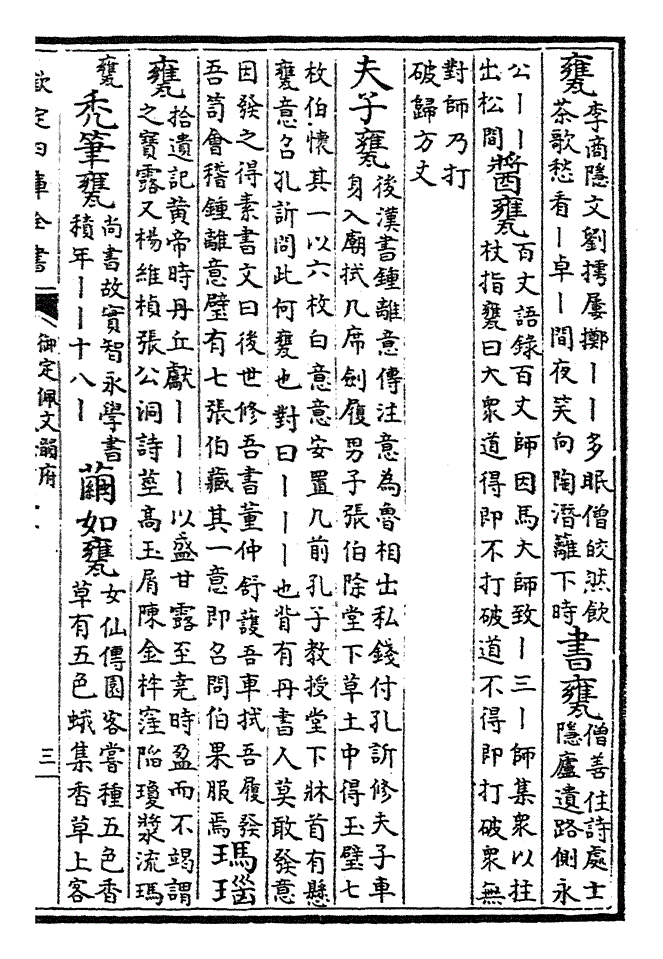 甕李商隱文劉摴屢擲丨丨多眠僧皎然飲
茶歌愁看丨卓丨間夜笑向陶潛籬下時
書甕僧善住詩處士
隱廬遺路側永
公丨丨
出松間
醬甕百丈語錄百丈師因馬大師致丨三丨師集衆以拄
杖指甕曰大衆道得即不打破道不得即打破衆無
對師乃打
破歸方丈
夫子甕後漢書鍾離意傳注意為魯相出私錢付孔訢修夫子車
身入廟拭几席劍履男子張伯除堂下草土中得玉璧七
枚伯懷其一以六枚白意意安置几前孔子教授堂下牀首有懸
甕意召孔訢問此何甕也對曰丨丨丨也背有丹書人莫敢發意
因發之得素書文曰後世修吾書董仲舒護吾車拭吾履發
吾笥會稽鍾離意璧有七張伯藏其一意即召問伯果服焉
瑪瑙
甕拾遺記黄帝時丹丘獻丨丨丨以盛甘露至堯時盈而不竭謂
之寶露又楊維楨張公洞詩莖髙玉屑陳金柈窪陷瓊漿流瑪
甕
秃筆甕尚書故實智永學書
積年丨丨十八丨
繭如甕女仙傳園客嘗種五色香
草有五色蛾集香草上客
欽定四庫全書
御定佩文韻府
三